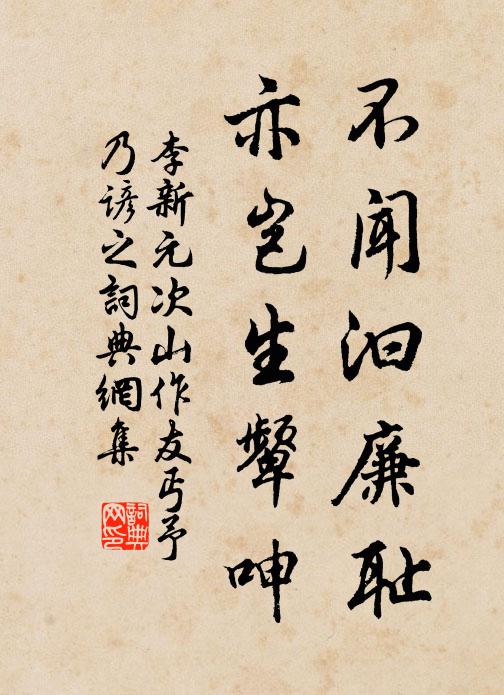 不聞汩廉耻
亦豈生顰呻
李新元次山作友丐予
乃諺之詞典網集
詞典
网印